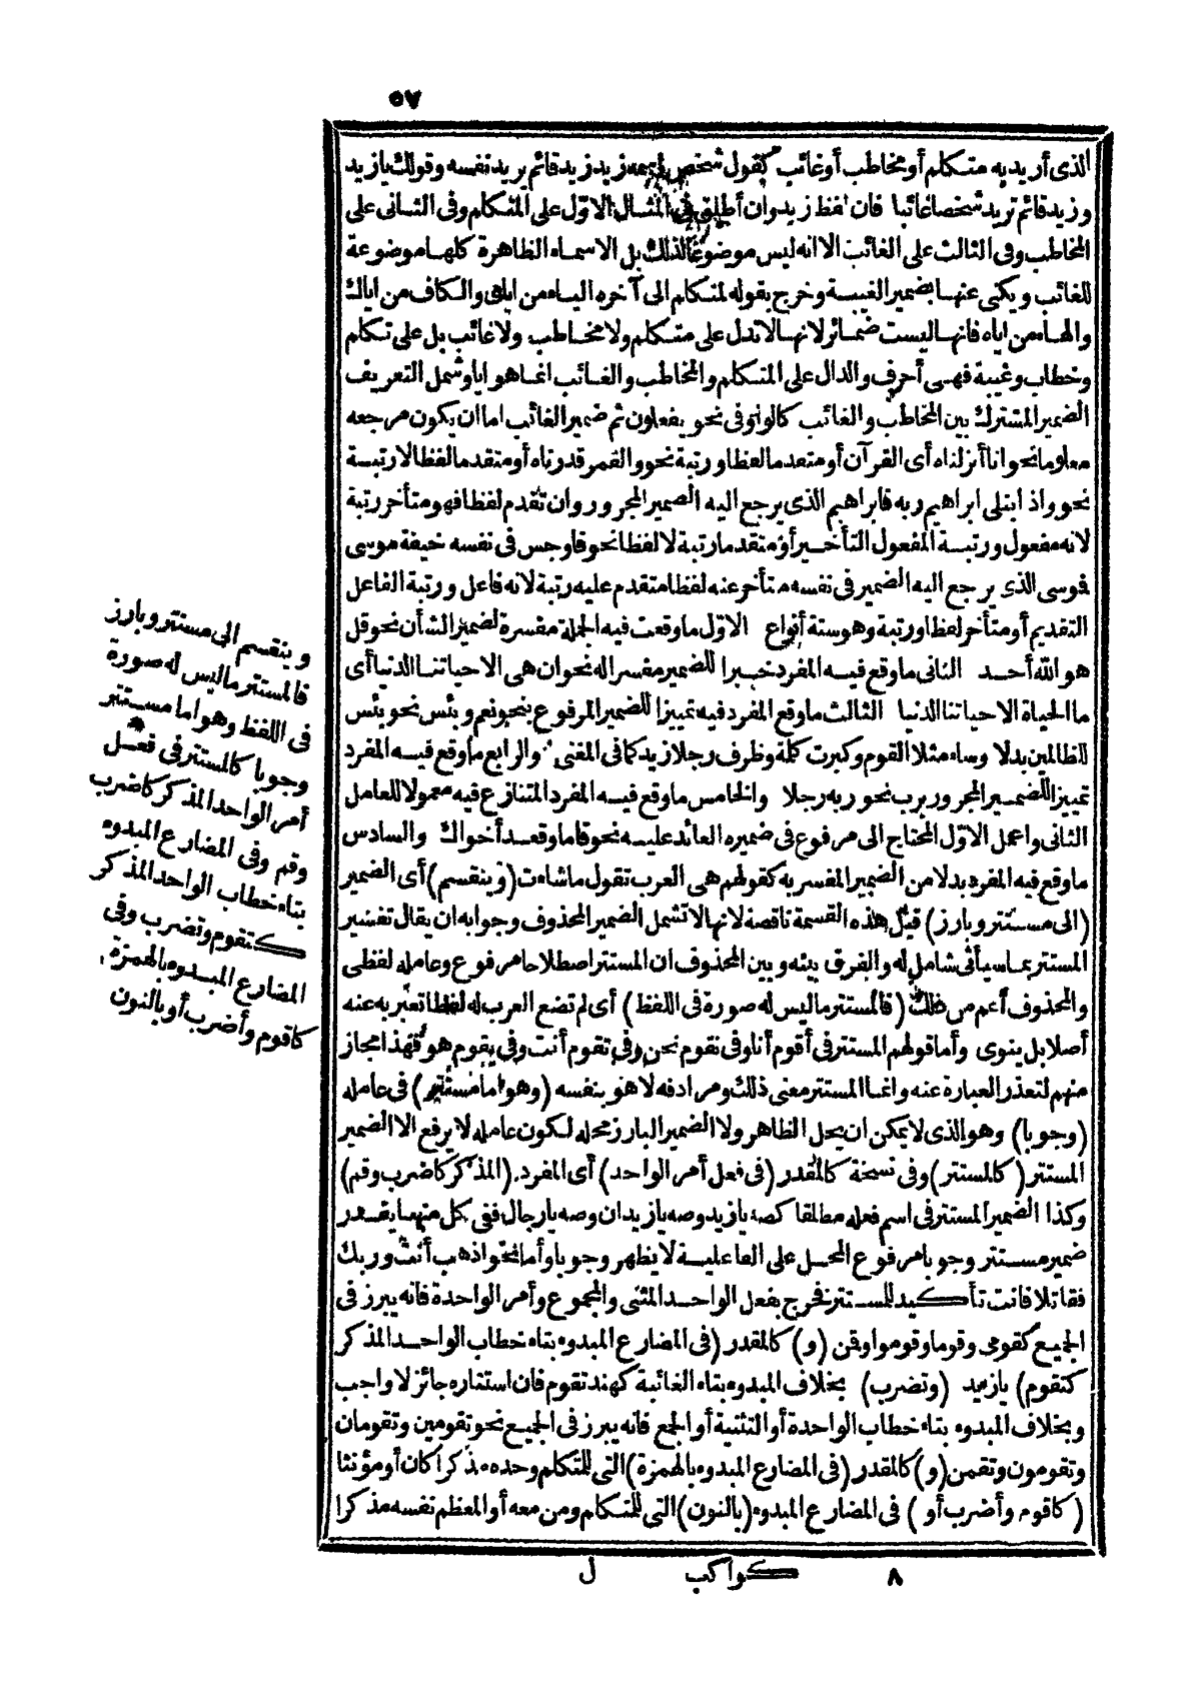 ٥٧
الذى أريد به متكلم أو مخاطب أو غائب كقول شخص اسمه زيد زيد قائم يريد نفسه وقولك يا زيد
وزيد قائم تريد شخصا غائبا فان لفظ زيد وان أطلق فى المثال الاوّل على المتكلم وفى الثانى على
المخاطب وفى الثالث على الغائب الا انه ليس موضوعا لذلك بل الاسماء الظاهرة كلها موضوعة
للغائب ويكنى عنها بضمير الغيبة وخرج بقوله لمتكلم الى آخره الياء من اياى والكاف من اياك
والهاء من اياه فانها ليست ضمائر لانها لا تدل على متكلم ولا مخاطب ولا غائب بل على تكلم
وخطاب وغيبة فهى أحرف والدال على المتكلم والمخاطب والغائب انما هو ايا وشمل التعريف
الضمير المشترك بين المخاطب والغائب كالواو فى نحو يفعلون ثم ضمير الغائب اما ان يكون مرجعه
معلوما نحو انا أنزلناه أى القرآن أو متقدما لفظا ورتبة نحو والقمر قدرناه أو متقدما لفظا لا رتبة
نحو واذ ابتلى ابراهيم ربه فابراهيم الذى يرجع اليه الضمير المجرور وان تقدم لفظا فهو متأخر رتبة
لانه مفعول ورتبة المفعول التأخير أو متقدما رتبة لا لفظا نحو فاوجس فى نفسه خيفة موسى
فموسى الذى يرجع اليه الضمير فى نفسه متأخر عنه لفظا متقدم عليه رتبة لانه فاعل ورتبة الفاعل
التقديم أو متأخر لفظا ورتبة وهو ستة أنواع الاوّل ما وقعت فيه الجملة مفسرة لضمير الشأن نحو قل
هو الله أحد الثانى ما وقع فيه المفرد خبرا للضمير مفسرا له نحو ان هى الا حياتنا الدنيا أى
ما الحياة الا حياتنا الدنيا الثالث ما وقع المفرد فيه تمييزا للضمير المرفوع بنحو نعم وبئس نحو بئس
للظالمين بدلا وساء مثلا القوم وكبرت كلمة وظرف رجلا زيد كما فى المغنى والرابع ما وقع فيه المفرد
تمييزا للضمير المجرور برب نحو ربه رجلا والخامس ما وقع فيه المفرد المتنازع فيه معمولا للعامل
الثانى واعمل الاوّل المحتاج الى مرفوع فى ضميره العائد عليه نحو قاما وقعد أخواك والسادس
ما وقع فيه المفرد بدلا من الضمير المفسر به كقولهم هى العرب تقول ما شاءت (وينقسم) أى الضمير
(الى مستتر وبارز) قيل هذه القسمة ناقصة لانها لا تشمل الضمير المحذوف وجوابه ان يقال تفسير
المستتر بما سيأتى شامل له والفرق بينه وبين المحذوف ان المستتر اصطلاحا مرفوع وعامله لفظى
والمحذوف أعم من ذلك (فالمستتر ما ليس له صورة فى اللفظ) أى لم تضع العرب له لفظا تعبر به عنه
أصلا بل ينوى وأما قولهم المستتر فى أقوم أنا وفى نقوم نحن وفى تقوم أنت وفى يقوم هو فهذا مجاز
منهم لتعذر العبارة عنه وانما المستتر معنى ذلك ومرادفه لا هو بنفسه (وهو اما مستتر) فى عامله
(وجوبا) وهو الذى لا يمكن ان يحل الظاهر ولا الضمير البارز محله لكون عامله لا يرفع الا الضمير
المستتر (كالمستتر) وفى نسخة كالمقدر (فى فعل أمر الواحد) أى المفرد. (المذكر كاضرب وقم)
وكذا الضمير المستتر فى اسم فعله مطلقا كصه يا زيد وصه يا زيدان وصه يا رجال ففى كل منها يقدر
ضمير مستتر وجوبا مرفوع المحل على الفاعلية لا يظهر وجوبا وأما نحو اذهب أنت وربك
فقاتلا فانت تأكيد للمستتر فخرج بفعل الواحد المثنى والمجموع وأمر الواحدة فانه يبرز فى
الجميع كقومى وقوما وقوموا وقن (و) كالمقدر (فى المضارع المبدوء بتاء خطاب الواحد المذكر
كتقوم) يا زيد (وتضرب) بخلاف المبدوء بتاء الغائبة كهند تقوم فان استتاره جائز لا واجب
وبخلاف المبدوء بتاء خطاب الواحدة أو التثنية أو الجمع فانه يبرز فى الجميع نحو تقومين وتقومان
وتقومون وتقمن (و) كالمقدر (فى المضارع المبدوء بالهمزة) التى للمتكلم وحده مذكرا كان أو مؤنثا
(كاقوم وأضرب أو) فى المضارع المبدوء (بالنون) التى للمتكلم ومن معه أو المعظم نفسه مذكرا
وينقسم الى مستتر وبارز
فالمستتر ما ليس له صورة
فى اللفظ وهو اما مستتر
وجوبا كالمستتر فى فعل
أمر الواحد المذكر كاضرب
وقم وفى المضارع المبدوء
بتاء خطاب الواحد المذكر
كتقوم وتضرب وفى
المضارع المبدوء بالهمزة
كاقوم وأضرب أو بالنون
٨ كواكب ل